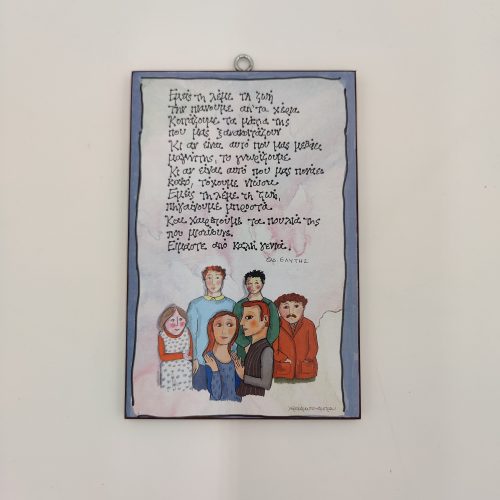 Εμείς τη λέμε τη ζωή
την πιάνουμε απ' τα χέρια
Κοιτάζουμε τα μάτια της
που μας ξανακοιτάζουν
Κι αν είναι αυτό που μας μεθάει
μαγνήτης, το γνωρίζουμε
Κι αν είναι αυτό που μας πονάει
κακό, τόχουμε νιώσει
Εμείς τη λέμε τη ζωή,
πηγαίνουμε μπροστά
Και χαιρετούμε τα πουλιά της
που μισεύουνε.
Είμαστε από καλή γενιά.
Οδ. ΕΛΥΤΗΣ